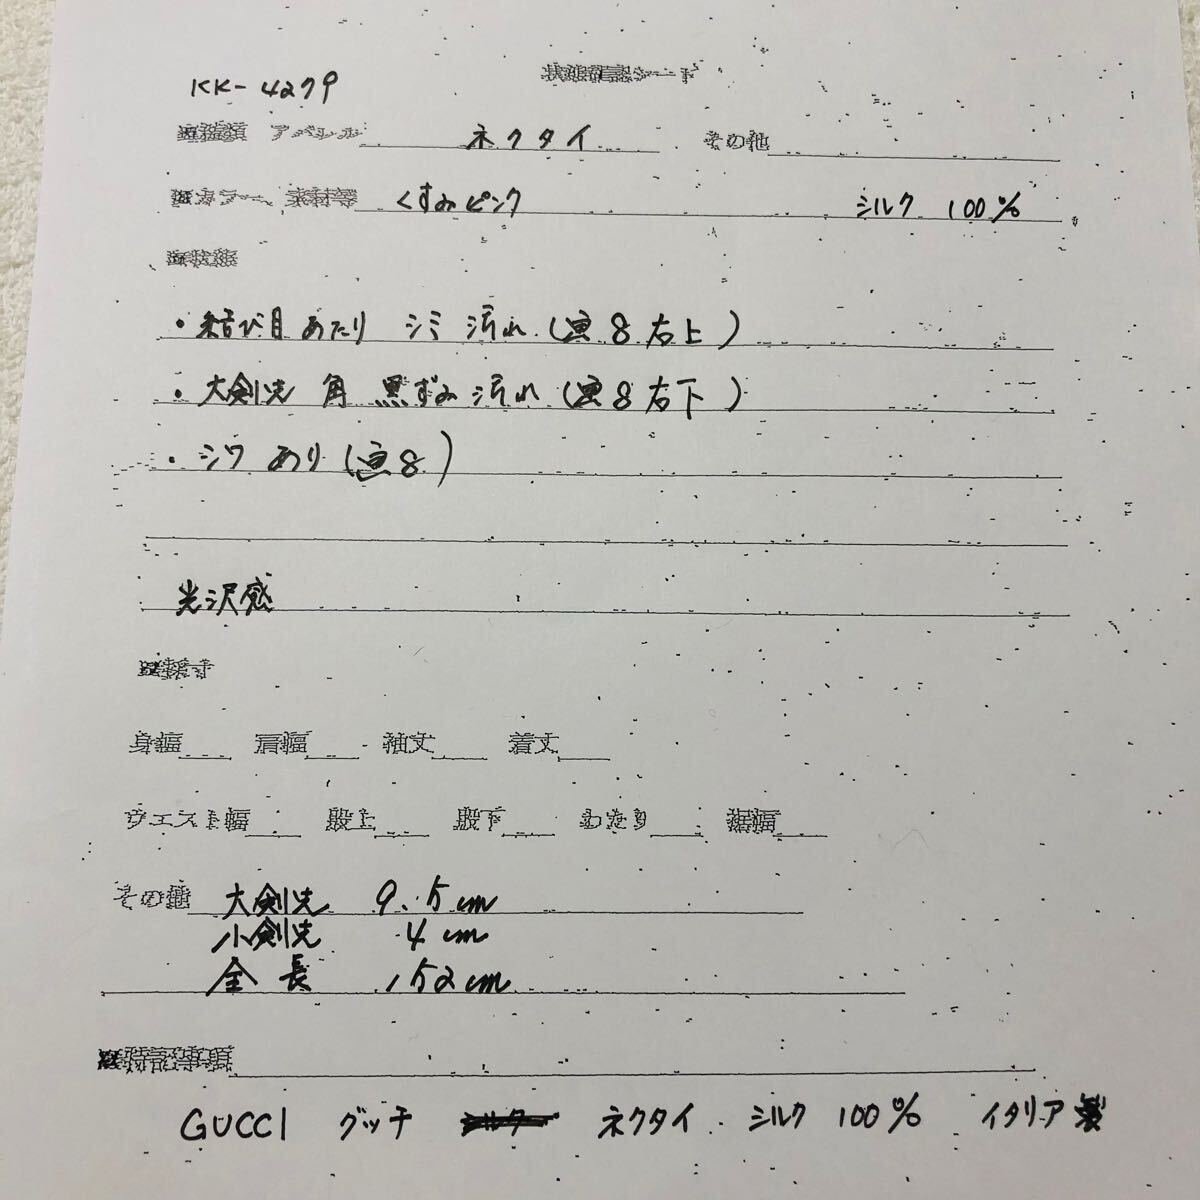 KK-4279
状態確認シート
※種類 アパレル ネクタイ その他
※カラー、素材等 くすみピンク シルク 100%
※状態
・結び目あたり シミ 汚れ (画8右上)
・大剣先 角 黒ずみ汚れ (画8右下)
・シワ あり (画8)
光沢感
※採寸
身幅 肩幅 袖丈 着丈
ウエスト幅 股上 股下 わたり 裾幅
その他 大剣先 9.5cm
小剣先 4cm
全長 152cm
※特記事項
GUCCI グッチ ネクタイ シルク 100% イタリア製